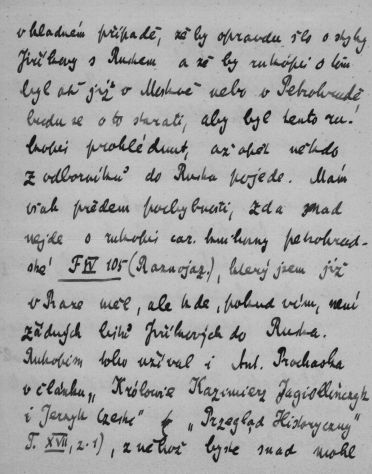 v kladném případě, že by opravdu šlo o styky
Jiříkovy s Ruskem a že by rukopis o tom
byl ať již v Moskvě nebo v Petrohradě,
budu se o to starati, aby byl tento ru-
kopis prohlédnut, až opět někdo
z odborníků do Ruska pojede. Mám
však předem pochybnosti, zda snad
nejde o rukopis car. knihovny petrohrad-
ské F IV 105 (Raznojaz.), který jsem již
v Praze měl, ale kde, pokud vím, není
žádných listů Jiříkových do Ruska.
Rukopisu toho užíval i Ant. Prochaska
v článku „Królowie Kazimierz Jagiellończyk
i Jerzyk Czeski" „Przegląd Historyczny"
T. XVII, z. 1), z něhož byste snad mohl